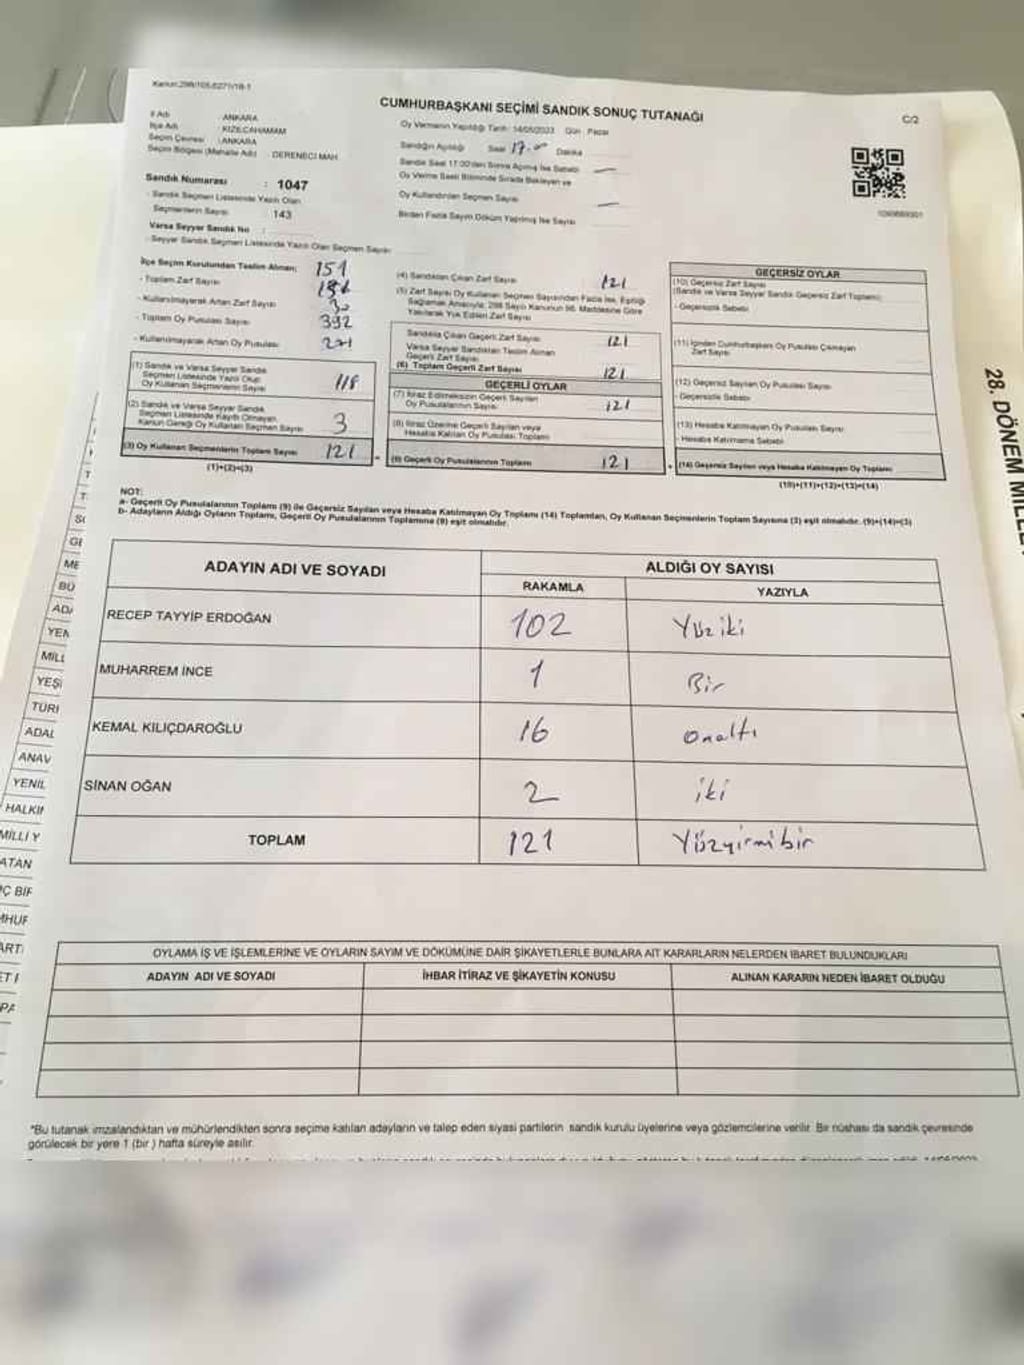 Kanun:298/105,6271/18-1
CUMHURBAŞKANI SEÇİMİ SANDIK SONUÇ TUTANAĞI
C/2
İl Adı : ANKARA
İlçe Adı : KIZILCAHAMAM
Seçim Çevresi : ANKARA
Seçim Bölgesi (Mahalle Adı) : DERENECİ MAH.
Oy Vermenin Yapıldığı Tarih: 14/05/2023 Gün : Pazar
Sandığın Açıldığı Saat 17.00 Dakika
Sandık Saat 17:00'den Sonra Açılmış İse Sebebi
Oy Verme Saati Bitiminde Sırada Bekleyen ve
Oy Kullandırılan Seçmen Sayısı
Birden Fazla Sayım Döküm Yapılmış İse Sayısı
Sandık Numarası : 1047
- Sandık Seçmen Listesinde Yazılı Olan
Seçmenlerin Sayısı : 143
Varsa Seyyar Sandık No :
- Seyyar Sandık Seçmen Listesinde Yazılı Olan Seçmen Sayısı
İlçe Seçim Kurulundan Teslim Alınan; 151
- Toplam Zarf Sayısı
- Kullanılmayarak Artan Zarf Sayısı 30
- Toplam Oy Pusulası Sayısı 392
- Kullanılmayarak Artan Oy Pusulası 271
(1) Sandık ve Varsa Seyyar Sandık
Seçmen Listesinde Yazılı Olup
Oy Kullanan Seçmenlerin Sayısı 118
(2) Sandık ve Varsa Seyyar Sandık
Seçmen Listesinde Kayıtlı Olmayan,
Kanun Gereği Oy Kullanan Seçmen Sayısı 3
(3) Oy Kullanan Seçmenlerin Toplam Sayısı 121
(1)+(2)=(3)
(4) Sandıktan Çıkan Zarf Sayısı 121
(5) Zarf Sayısı Oy Kullanan Seçmen Sayısından Fazla İse, Eşitliği
Sağlamak Amacıyla, 298 Sayılı Kanunun 98. Maddesine Göre
Yakılarak Yok Edilen Zarf Sayısı
Sandıkta Çıkan Geçerli Zarf Sayısı 121
Varsa Seyyar Sandıktan Teslim Alınan
Geçerli Zarf Sayısı
(6) Toplam Geçerli Zarf Sayısı 121
GEÇERLİ OYLAR
(7) İtiraz Edilmeksizin Geçerli Sayılan
Oy Pusulalarının Sayısı 121
(8) İtiraz Üzerine Geçerli Sayılan veya
Hesaba Katılan Oy Pusulası Toplamı
(9) Geçerli Oy Pusulalarının Toplamı 121
GEÇERSİZ OYLAR
(10) Geçersiz Zarf Sayısı
(Sandık ve Varsa Seyyar Sandık Geçersiz Zarf Toplamı)
- Geçersizlik Sebebi
(11) İçinden Cumhurbaşkanı Oy Pusulası Çıkmayan
Zarf Sayısı
(12) Geçersiz Sayılan Oy Pusulası Sayısı
- Geçersizlik Sebebi
(13) Hesaba Katılmayan Oy Pusulası Sayısı
- Hesaba Katılmama Sebebi
(14) Geçersiz Sayılan veya Hesaba Katılmayan Oy Toplamı
(10)+(11)+(12)+(13)=(14)
NOT:
a- Geçerli Oy Pusulalarının Toplamı (9) ile Geçersiz Sayılan veya Hesaba Katılmayan Oy Toplamı (14) Toplamları, Oy Kullanan Seçmenlerin Toplam Sayısına (3) eşit olmalıdır. (9)+(14)=(3)
b- Adayların Aldığı Oyların Toplamı, Geçerli Oy Pusulalarının Toplamına (9) eşit olmalıdır.
ADAYIN ADI VE SOYADI
ALDIĞI OY SAYISI
RAKAMLA YAZIYLA
RECEP TAYYİP ERDOĞAN 102 Yüz iki
MUHARREM İNCE 1 Bir
KEMAL KILIÇDAROĞLU 16 onaltı
SİNAN OĞAN 2 iki
TOPLAM 121 Yüzyirmi bir
OYLAMA İŞ VE İŞLEMLERİNE VE OYLARIN SAYIM VE DÖKÜMÜNE DAİR ŞİKAYETLERLE BUNLARA AİT KARARLARIN NELERDEN İBARET BULUNDUKLARI
ADAYIN ADI VE SOYADI İHBAR İTİRAZ VE ŞİKAYETİN KONUSU ALINAN KARARIN NEDEN İBARET OLDUĞU
*Bu tutanak imzalandıktan ve mühürlendikten sonra seçime katılan adayların ve talep eden siyasi partilerin sandık kurulu üyelerine veya gözlemcilerine verilir. Bir nüshası da sandık çevresinde
görülecek bir yere 1 (bir ) hafta süreyle asılır.
28. DÖNEM MİLLE
ME
BÜ
ADA
YEN
MİLL
YEŞİ
TÜRK
ADAL
ANAV
YENİL
HALKI
MİLLİ Y
ATAN